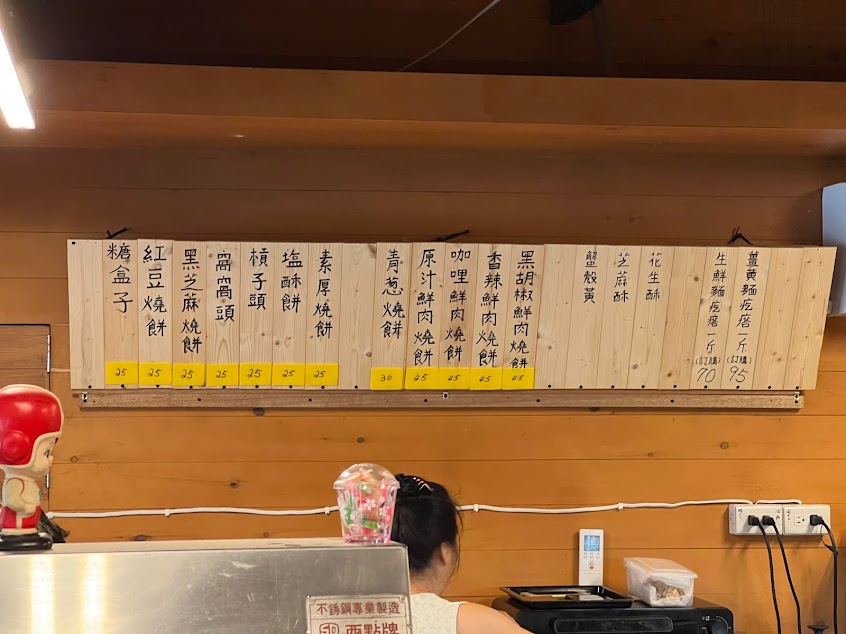 糖盒子 25
紅豆燒餅 25
黑芝蔴燒餅 25
窩窩頭 25
槓子頭 25
塩酥餅 25
素厚燒餅 25
青葱燒餅 30
原汁鮮肉燒餅 45
咖哩鮮肉燒餅 45
香辣鮮肉燒餅 45
黑胡椒鮮肉燒餅 45
蟹殼黃
芝蔴酥
花生酥
生鮮麵疙瘩一斤(訂購) 70
薑黃麵疙瘩一斤(訂購) 95
不銹鋼專業製造
西點牌